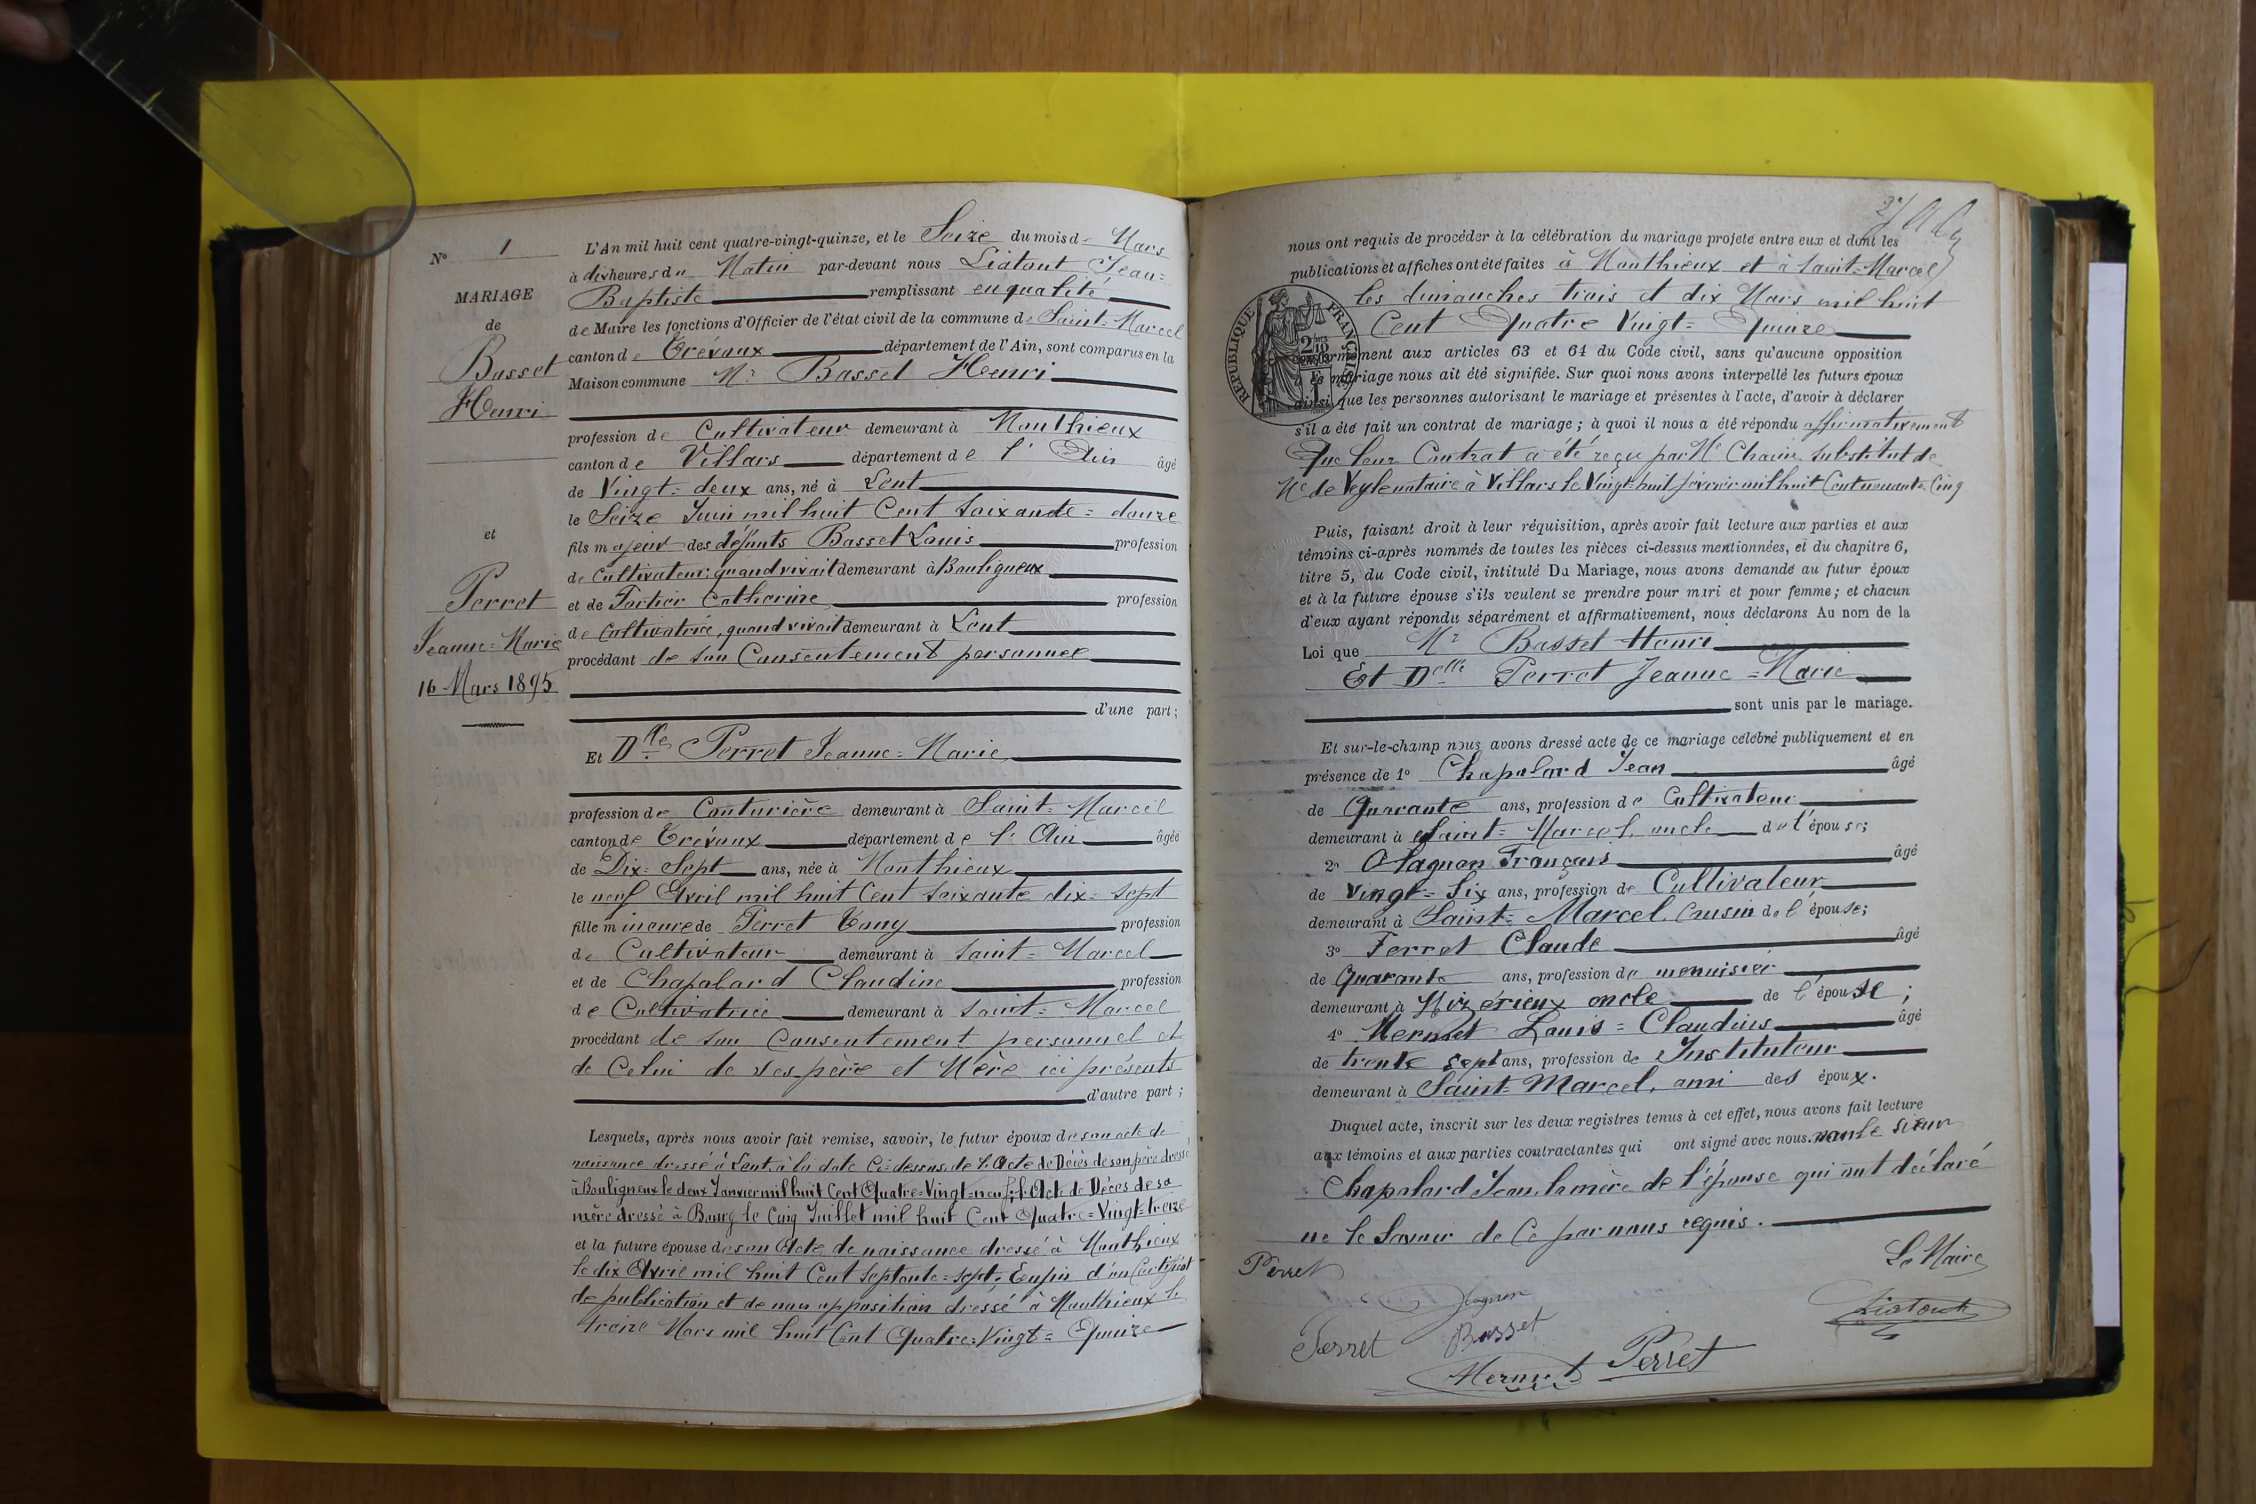 N° 1
MARIAGE
de
Basset
Henri
et
Perret
Jeanne=Marie
16 Mars 1895
L'An mil huit cent quatre-vingt-quinze, et le Seize du mois de Mars
à dix heures du Matin par-devant nous Liatout Jean=
Baptiste remplissant en qualité
de Maire les fonctions d'Officier de l'état civil de la commune de Saint=Marcel
canton de Trévoux département de l'Ain, sont comparus en la
Maison commune Mr Basset Henri
profession de Cultivateur demeurant à Monthieux
canton de Villars département de l'Ain âgé
de Vingt=deux ans, né à Lent
le Seize Juin mil huit Cent soixante=douze
fils majeur des défunts Basset Louis profession
de Cultivateur quand vivait demeurant à Bouligneux
et de Fortier Catherine profession
de Cultivatrice, quand vivait demeurant à Lent
procédant de son Consentement personnel
d'une part;
Et Dlle Perret Jeanne=Marie
profession de Couturière demeurant à Saint=Marcel
canton de Trévoux département de l'Ain âgée
de Dix=Sept ans, née à Monthieux
le neuf Avril mil huit Cent soixante dix=sept
fille mineure de Perret Tony profession
de Cultivateur demeurant à Saint=Marcel
et de Chapolard Claudine profession
de Cultivatrice demeurant à Saint=Marcel
procédant de son Consentement personnel et
de Celui de ses père et Mère ici présents
d'autre part;
Lesquels, après nous avoir fait remise, savoir, le futur époux de son acte de
naissance dressé à Lent à la date Ci=dessus de l'Acte de Décès de son père dressé
à Bouligneux le deux Janvier mil huit Cent Quatre=Vingt=neuf; l'Acte de Décès de sa
mère dressé à Bourg le Cinq Juillet mil huit Cent Quatre=Vingt=treize
et la future épouse de son Acte de naissance dressé à Monthieux
le dix Avril mil huit Cent Septante=sept; Enfin d'un Certificat
de publication et de non opposition dressé à Monthieux le
treize Mars mil huit Cent Quatre=Vingt=Quinze
nous ont requis de procéder à la célébration du mariage projeté entre eux et dont les
publications et affiches ont été faites à Monthieux et à Saint=Marcel
les dimanches trois et dix Mars mil huit
Cent Quatre Vingt=Quinze
RÉPUBLIQUE FRANÇAISE
conformément aux articles 63 et 64 du Code civil, sans qu'aucune opposition
à ce mariage nous ait été signifiée. Sur quoi nous avons interpellé les futurs époux
ainsi que les personnes autorisant le mariage et présentes à l'acte, d'avoir à déclarer
s'il a été fait un contrat de mariage; à quoi il nous a été répondu affirmativement
Que leur Contrat a été reçu par Me Chavin substitut de
Me de Veyle notaire à Villars le Vingt=huit février mil huit Cent nonante Cinq
Puis, faisant droit à leur réquisition, après avoir fait lecture aux parties et aux
témoins ci-après nommés de toutes les pièces ci-dessus mentionnées, et du chapitre 6,
titre 5, du Code civil, intitulé Du Mariage, nous avons demandé au futur époux
et à la future épouse s'ils veulent se prendre pour mari et pour femme; et chacun
d'eux ayant répondu séparément et affirmativement, nous déclarons Au nom de la
Loi que Mr Basset Henri
Et Delle Perret Jeanne=Marie
sont unis par le mariage.
Et sur-le-champ nous avons dressé acte de ce mariage célébré publiquement et en
présence de 1° Chapolard Jean âgé
de Quarante ans, profession de Cultivateur
demeurant à Saint=Marcel, oncle de l'épouse;
2° Olagnon François âgé
de Vingt=Six ans, profession de Cultivateur
demeurant à Saint=Marcel Cousin de l'épouse;
3° Ferret Claude âgé
de Quarante ans, profession de menuisier
demeurant à Mizérieux oncle de l'épouse;
4° Mermet Louis=Claudius âgé
de trente sept ans, profession de Instituteur
demeurant à Saint=Marcel, ami des époux.
Duquel acte, inscrit sur les deux registres tenus à cet effet, nous avons fait lecture
aux témoins et aux parties contractantes qui ont signé avec nous. non le sieur
Chapolard Jean, la mère de l'épouse qui ont déclaré
ne le Savoir de Ce par nous requis.
Perret
Le Maire
Liatout
Ferret Basset
Mermet Perret